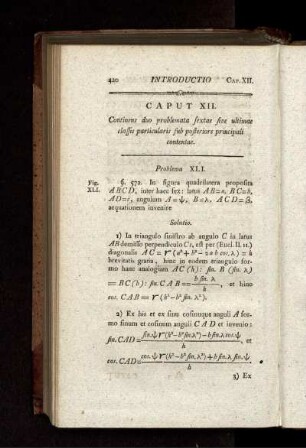 420 INTRODUCTIO CAP. XII.
CAPUT XII.
Continens duo problemata ſextae ſive ultimae
claſſis particularis ſub poſteriore principali
contentae.
Problema XLI.
Fig. XLI.
§. 572. In figura quadrilatera propoſita
ABCD, inter haec ſex: latus AB=a, BC=b,
AD=c, angulum A=ψ, B=λ, ACD=β,
aequationem invenire
Solutio.
1) In triangulo ſiniſtro ab angulo C in latus
AB demiſſo perpendiculo Cs, eſt per (Eucl. II. 12.)
diagonalis AC=√(a²+b²-2ab coſ. λ)=h
brevitatis gratia, hinc in eodem triangulo for-
mo hanc analogiam AC (h): ſin. B (ſin. λ)
=BC (b): ſin. CAB = b ſin. λ / h, et hinc
coſ. CAB = √(h²-b² ſin. λ²).
2) Ex his et ex ſinu coſinuque anguli A for-
mo ſinum et coſinum anguli CAD et invenio:
ſin. CAD = ſin. ψ √(h²-b² ſin. λ²)-b ſin. λ coſ. ψ / h, et
coſ. CAD = coſ. ψ √(h²-b² ſin. λ²)+b ſin. λ ſin. ψ / h
3) Ex